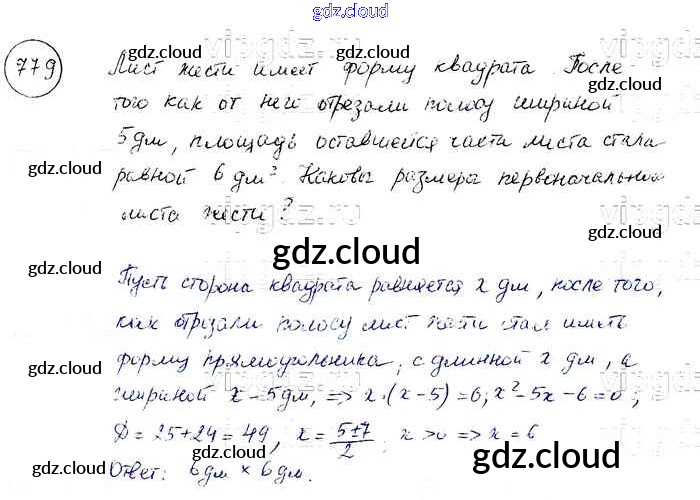 gdz.cloud
779
Лист жести имеет форму квадрата. После
того как от него отрезали полосу шириной
5 дм, площадь оставшейся части листа стала
равной 6 дм². Каковы размеры первоначальной
листа жести?
Пусть сторона квадрата равняется x дм, после того,
как отрезали полосу лист жести стал иметь
форму прямоугольника, с длинной x дм, а
шириной x - 5 дм, => x·(x-5)=6; x²-5x-6=0;
D=25+24=49, x = (5±7)/2, x>0 => x=6
Ответ: 6 дм × 6 дм.
gdz.cloud
gdz.cloud
gdz.cloud
gdz.cloud
gdz.cloud
gdz.cloud
gdz.cloud
gdz.cloud
gdz.cloud
gdz.cloud
gdz.cloud
gdz.cloud
vipgdz.ru
vipgdz.ru
vipgdz.ru
vipgdz.ru